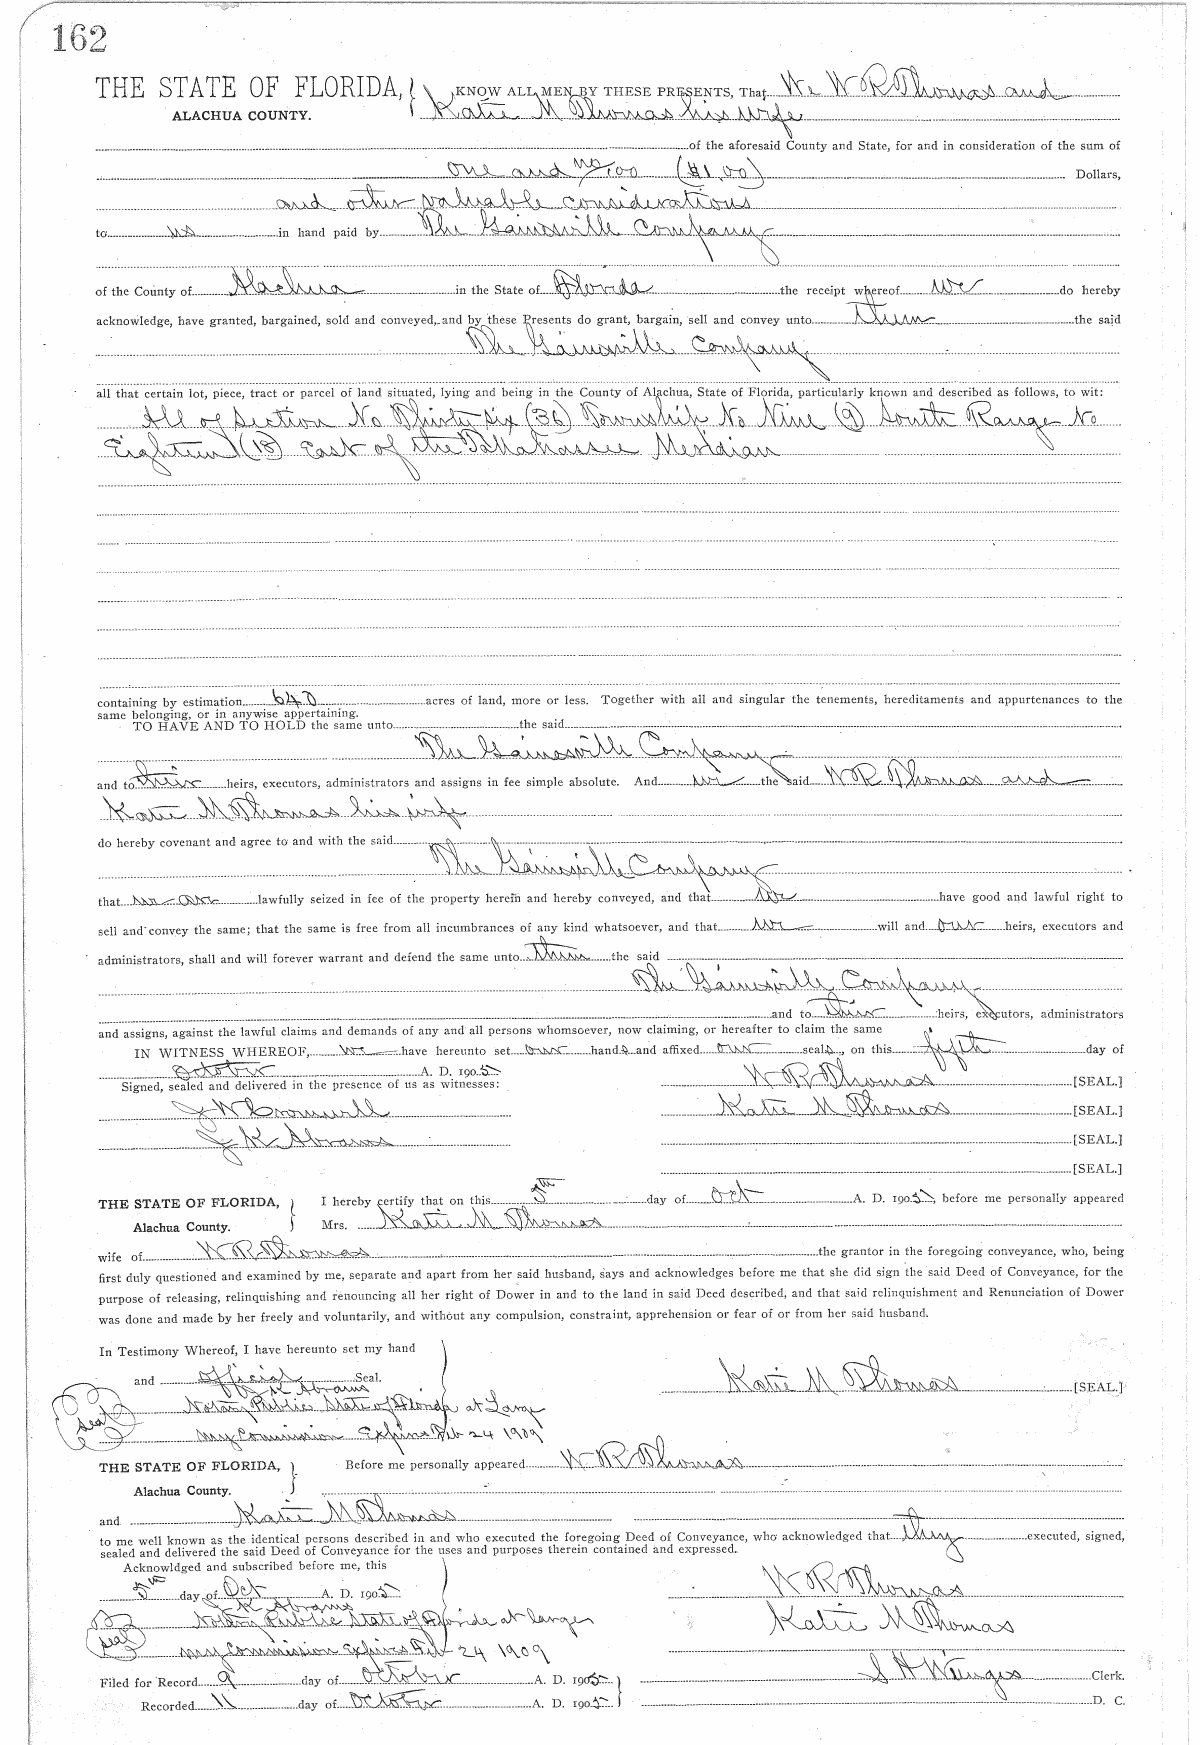 162
THE STATE OF FLORIDA, KNOW ALL MEN BY THESE PRESENTS, That We W R Thomas and
ALACHUA COUNTY. Katie M Thomas his wife
of the aforesaid County and State, for and in consideration of the sum of
one and no/100 ($1.00) Dollars,
and other valuable considerations
to us in hand paid by The Gainesville Company
of the County of Alachua in the State of Florida the receipt whereof we do hereby
acknowledge, have granted, bargained, sold and conveyed, and by these Presents do grant, bargain, sell and convey unto them the said
The Gainesville Company
all that certain lot, piece, tract or parcel of land situated, lying and being in the County of Alachua, State of Florida, particularly known and described as follows, to wit:
All of Section No Thirty six (36) Township No Nine (9) South Range No
Eighteen (18) East of the Tallahassee Meridian
containing by estimation 640 acres of land, more or less. Together with all and singular the tenements, hereditaments and appurtenances to the
same belonging, or in anywise appertaining.
TO HAVE AND TO HOLD the same unto the said
The Gainesville Company
and to their heirs, executors, administrators and assigns in fee simple absolute. And we the said W R Thomas and
Katie M Thomas his wife
do hereby covenant and agree to and with the said
The Gainesville Company
that we are lawfully seized in fee of the property herein and hereby conveyed, and that we have good and lawful right to
sell and convey the same; that the same is free from all incumbrances of any kind whatsoever, and that we will and our heirs, executors and
administrators, shall and will forever warrant and defend the same unto them the said
The Gainesville Company
and to their heirs, executors, administrators
and assigns, against the lawful claims and demands of any and all persons whomsoever, now claiming, or hereafter to claim the same
IN WITNESS WHEREOF, we have hereunto set our hands and affixed our seals, on this fifth day of
October A. D. 1905 W R Thomas [SEAL.]
Signed, sealed and delivered in the presence of us as witnesses:
J W Cromwell Katie M Thomas [SEAL.]
J K Abrams [SEAL.]
[SEAL.]
THE STATE OF FLORIDA, I hereby certify that on this 5th day of Oct A. D. 1905, before me personally appeared
Alachua County. Mrs. Katie M Thomas
wife of W R Thomas the grantor in the foregoing conveyance, who, being
first duly questioned and examined by me, separate and apart from her said husband, says and acknowledges before me that she did sign the said Deed of Conveyance, for the
purpose of releasing, relinquishing and renouncing all her right of Dower in and to the land in said Deed described, and that said relinquishment and Renunciation of Dower
was done and made by her freely and voluntarily, and without any compulsion, constraint, apprehension or fear of or from her said husband.
In Testimony Whereof, I have hereunto set my hand
and official Seal. Katie M Thomas [SEAL.]
J K Abrams
Notary Public State of Florida at Large
seal
My Commission Expires Feb 24 1909
THE STATE OF FLORIDA, Before me personally appeared W R Thomas
Alachua County.
and Katie M Thomas
to me well known as the identical persons described in and who executed the foregoing Deed of Conveyance, who acknowledged that they executed, signed,
sealed and delivered the said Deed of Conveyance for the uses and purposes therein contained and expressed.
Acknowldged and subscribed before me, this
5th day of Oct A. D. 1905 W R Thomas
J K Abrams
Notary Public State of Florida at large Katie M Thomas
seal
my Commission Expires Feb 24 1909
Filed for Record 9 day of October A. D. 1905 S H Wienges Clerk.
Recorded 11 day of October A. D. 1905 D. C.